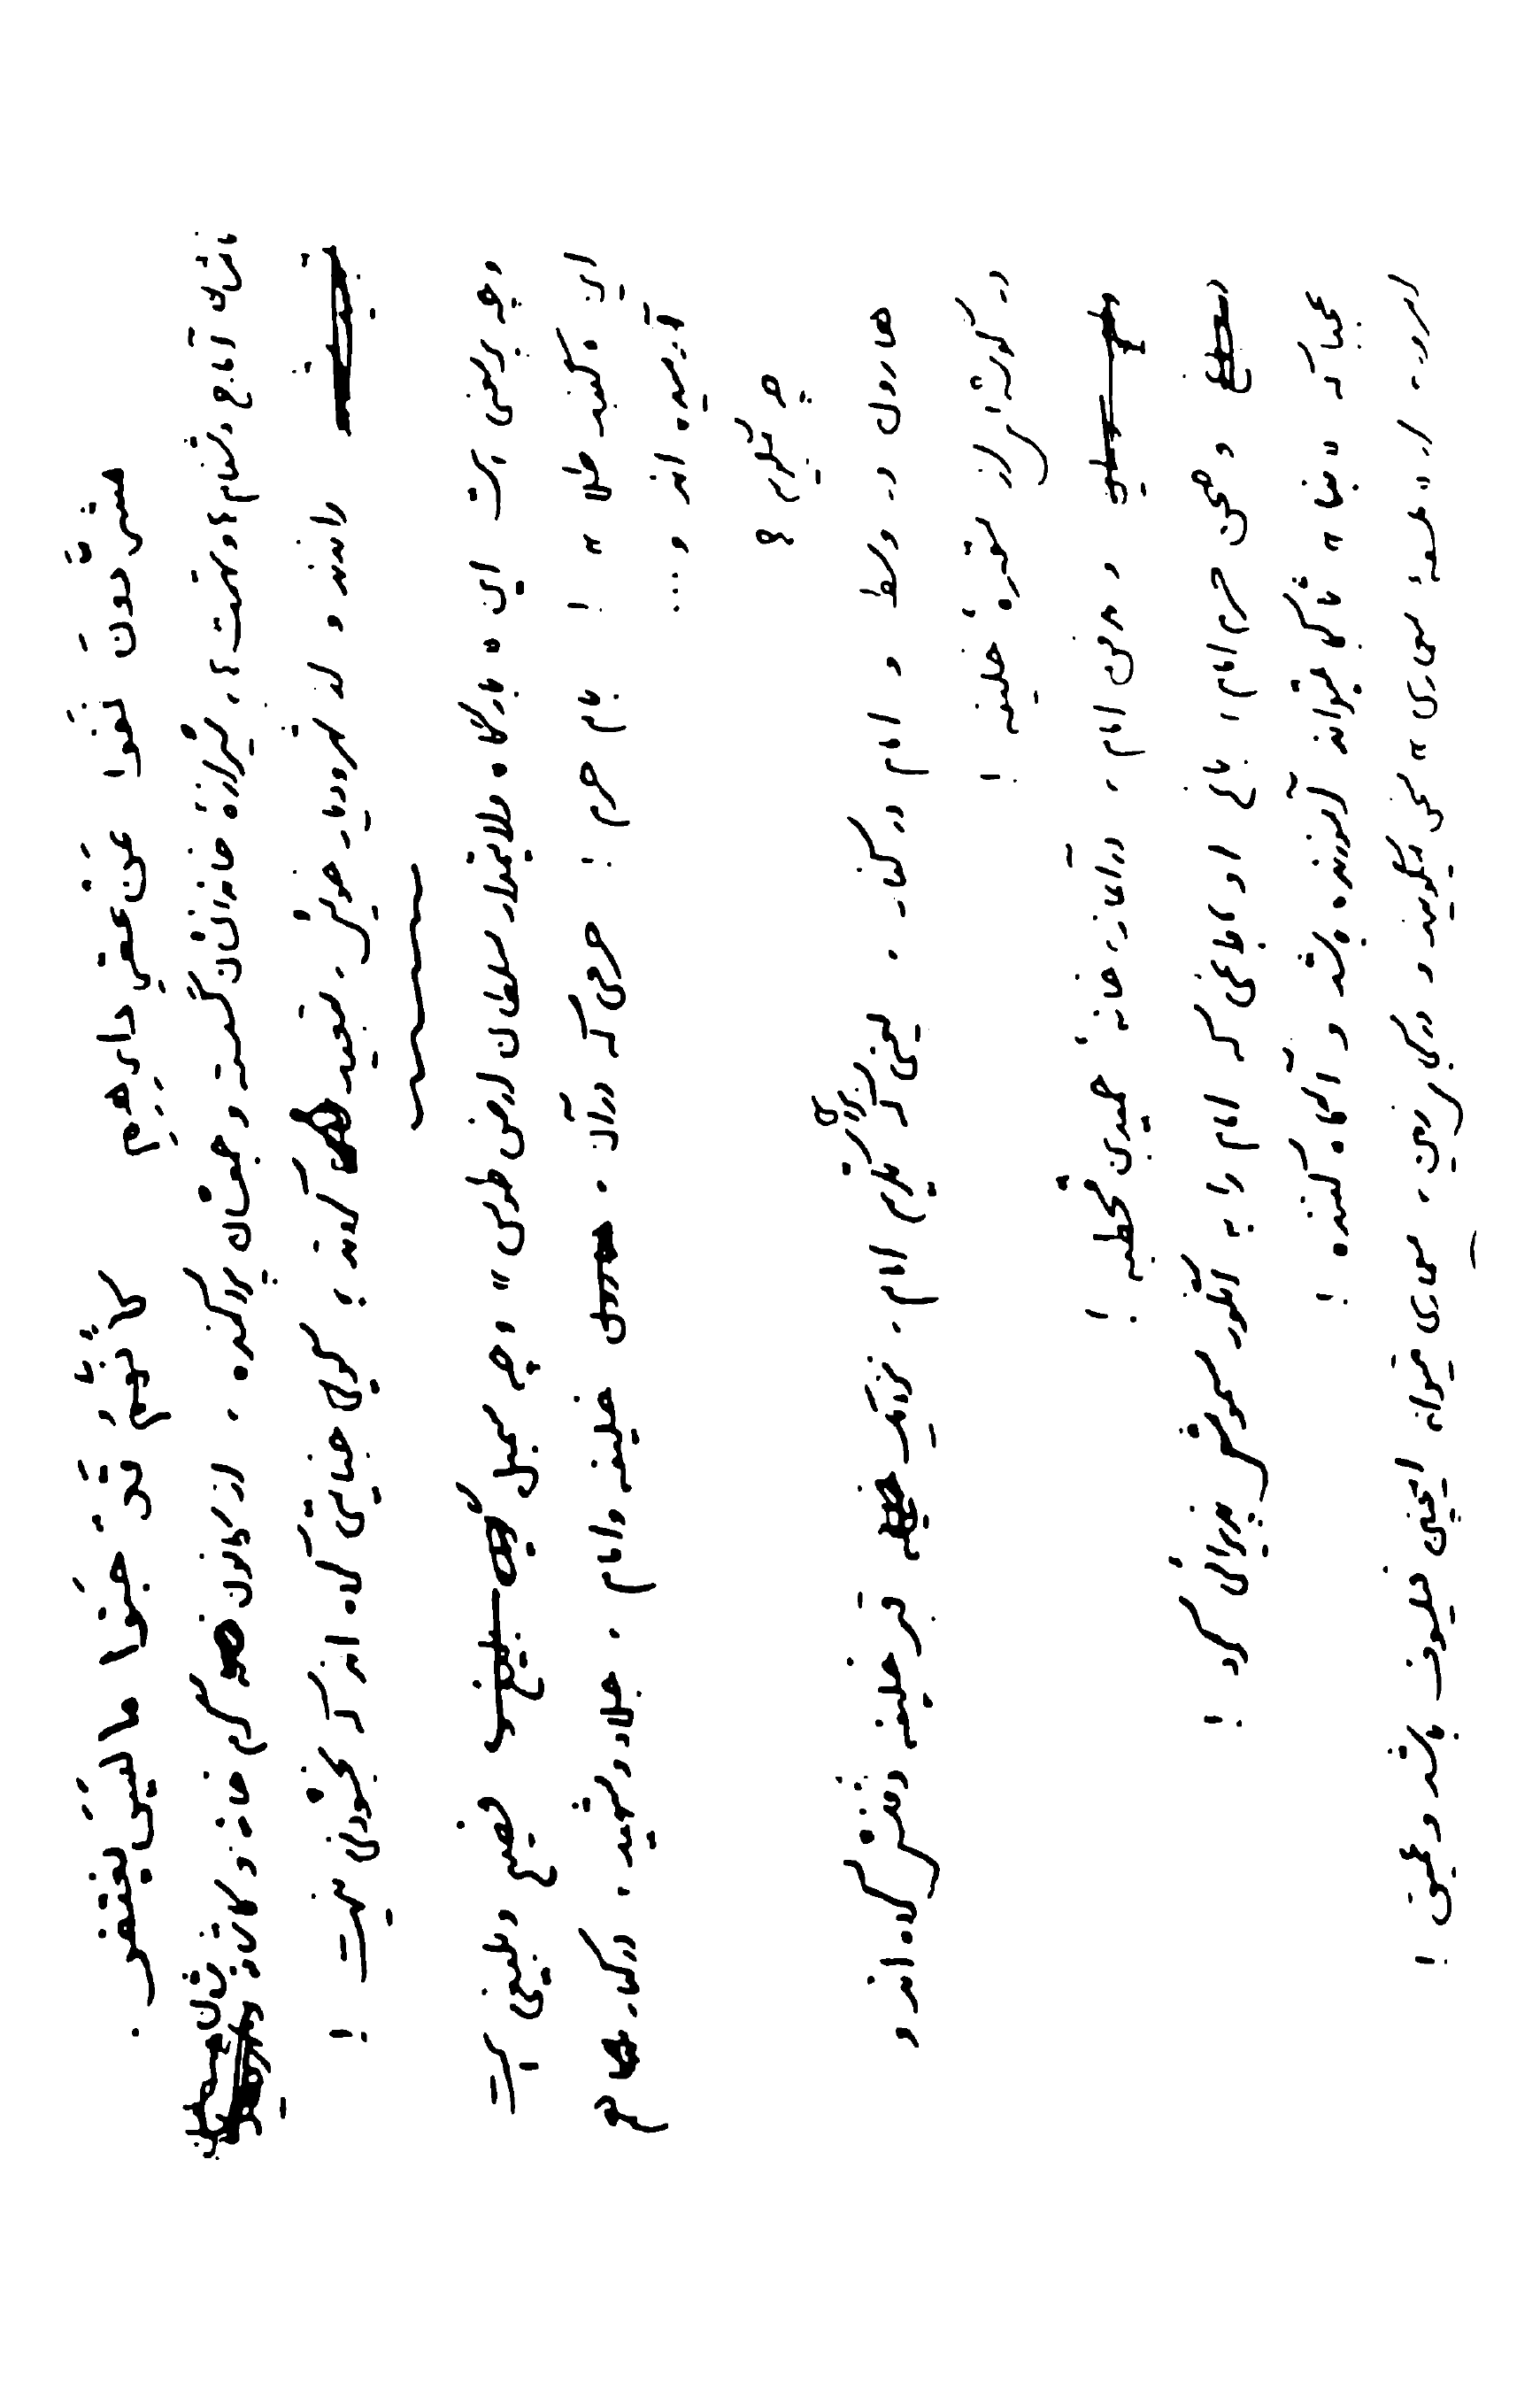 مشرّدون نفوا عن عقرِ دارِهِم
کأنّهُم قد جنوا ما لیس یغتفر .
نامشان آماج دشنام و تهمت ، شیرازهٔ خاندانشان گسسته و جمعشان پراکنده ، از کانون گرم خانه و کاشانه شان
راندند و از شهر و دیار خویش ، تبعید کردند ، گویی جنایتی کرده اند که بخشودنی نیست !
و چه پرمعنی است این « بارگاه ملایکمدار سلطان ارض طوس » و چه سمبل فصیح و بلیغی است
این « گنبد طلا » ! بام حرم ! حرمی که در آن ، خلیفه و امام ، جلاد و شهید ، در کنار هم
آرمیده اند و ...
چه میگویم ؟
هارون در وسط و امام در کنار ، یعنی که نگویم امام ، نزدیک قبر خلیفه دفنش کرده اند و
در گوشه ای از مقبرهٔ خلیفه !
و مدفن امام ، در آغاز ، خانهٔ حمیدبن قحطبه !
و صحن حرم امام ، باغ او ، باغی که امام را به انگور مسمومش پذیرائی کرد !
عجبا که « بنا » تا کجا میتواند آموزنده باشد و آگاه کننده !
امروز ، از « فلسفهٔ معماری » سخن میگویند و در کجای زمین ، معماری میتواند اینچنین فیلسوف باشد و عمیق !